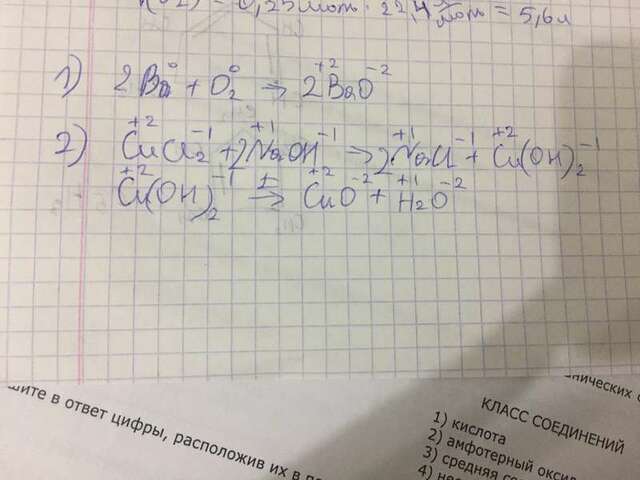 = 0,25моль · 22,4 л/моль = 5,6л
1) 2Ba⁰ + O₂⁰ → 2Ba⁺²O⁻²
2) Cu⁺²Cl₂⁻¹ + 2Na⁺¹OH⁻¹ → 2Na⁺¹Cl⁻¹ + Cu⁺²(OH)₂⁻¹
Cu⁺²(OH)₂⁻¹ t→ Cu⁺²O⁻² + H₂⁺¹O⁻²
шите в ответ цифры, расположив их в
КЛАСС СОЕДИНЕНИЙ
1) кислота
2) амфотерный оксид
3) средняя
4)